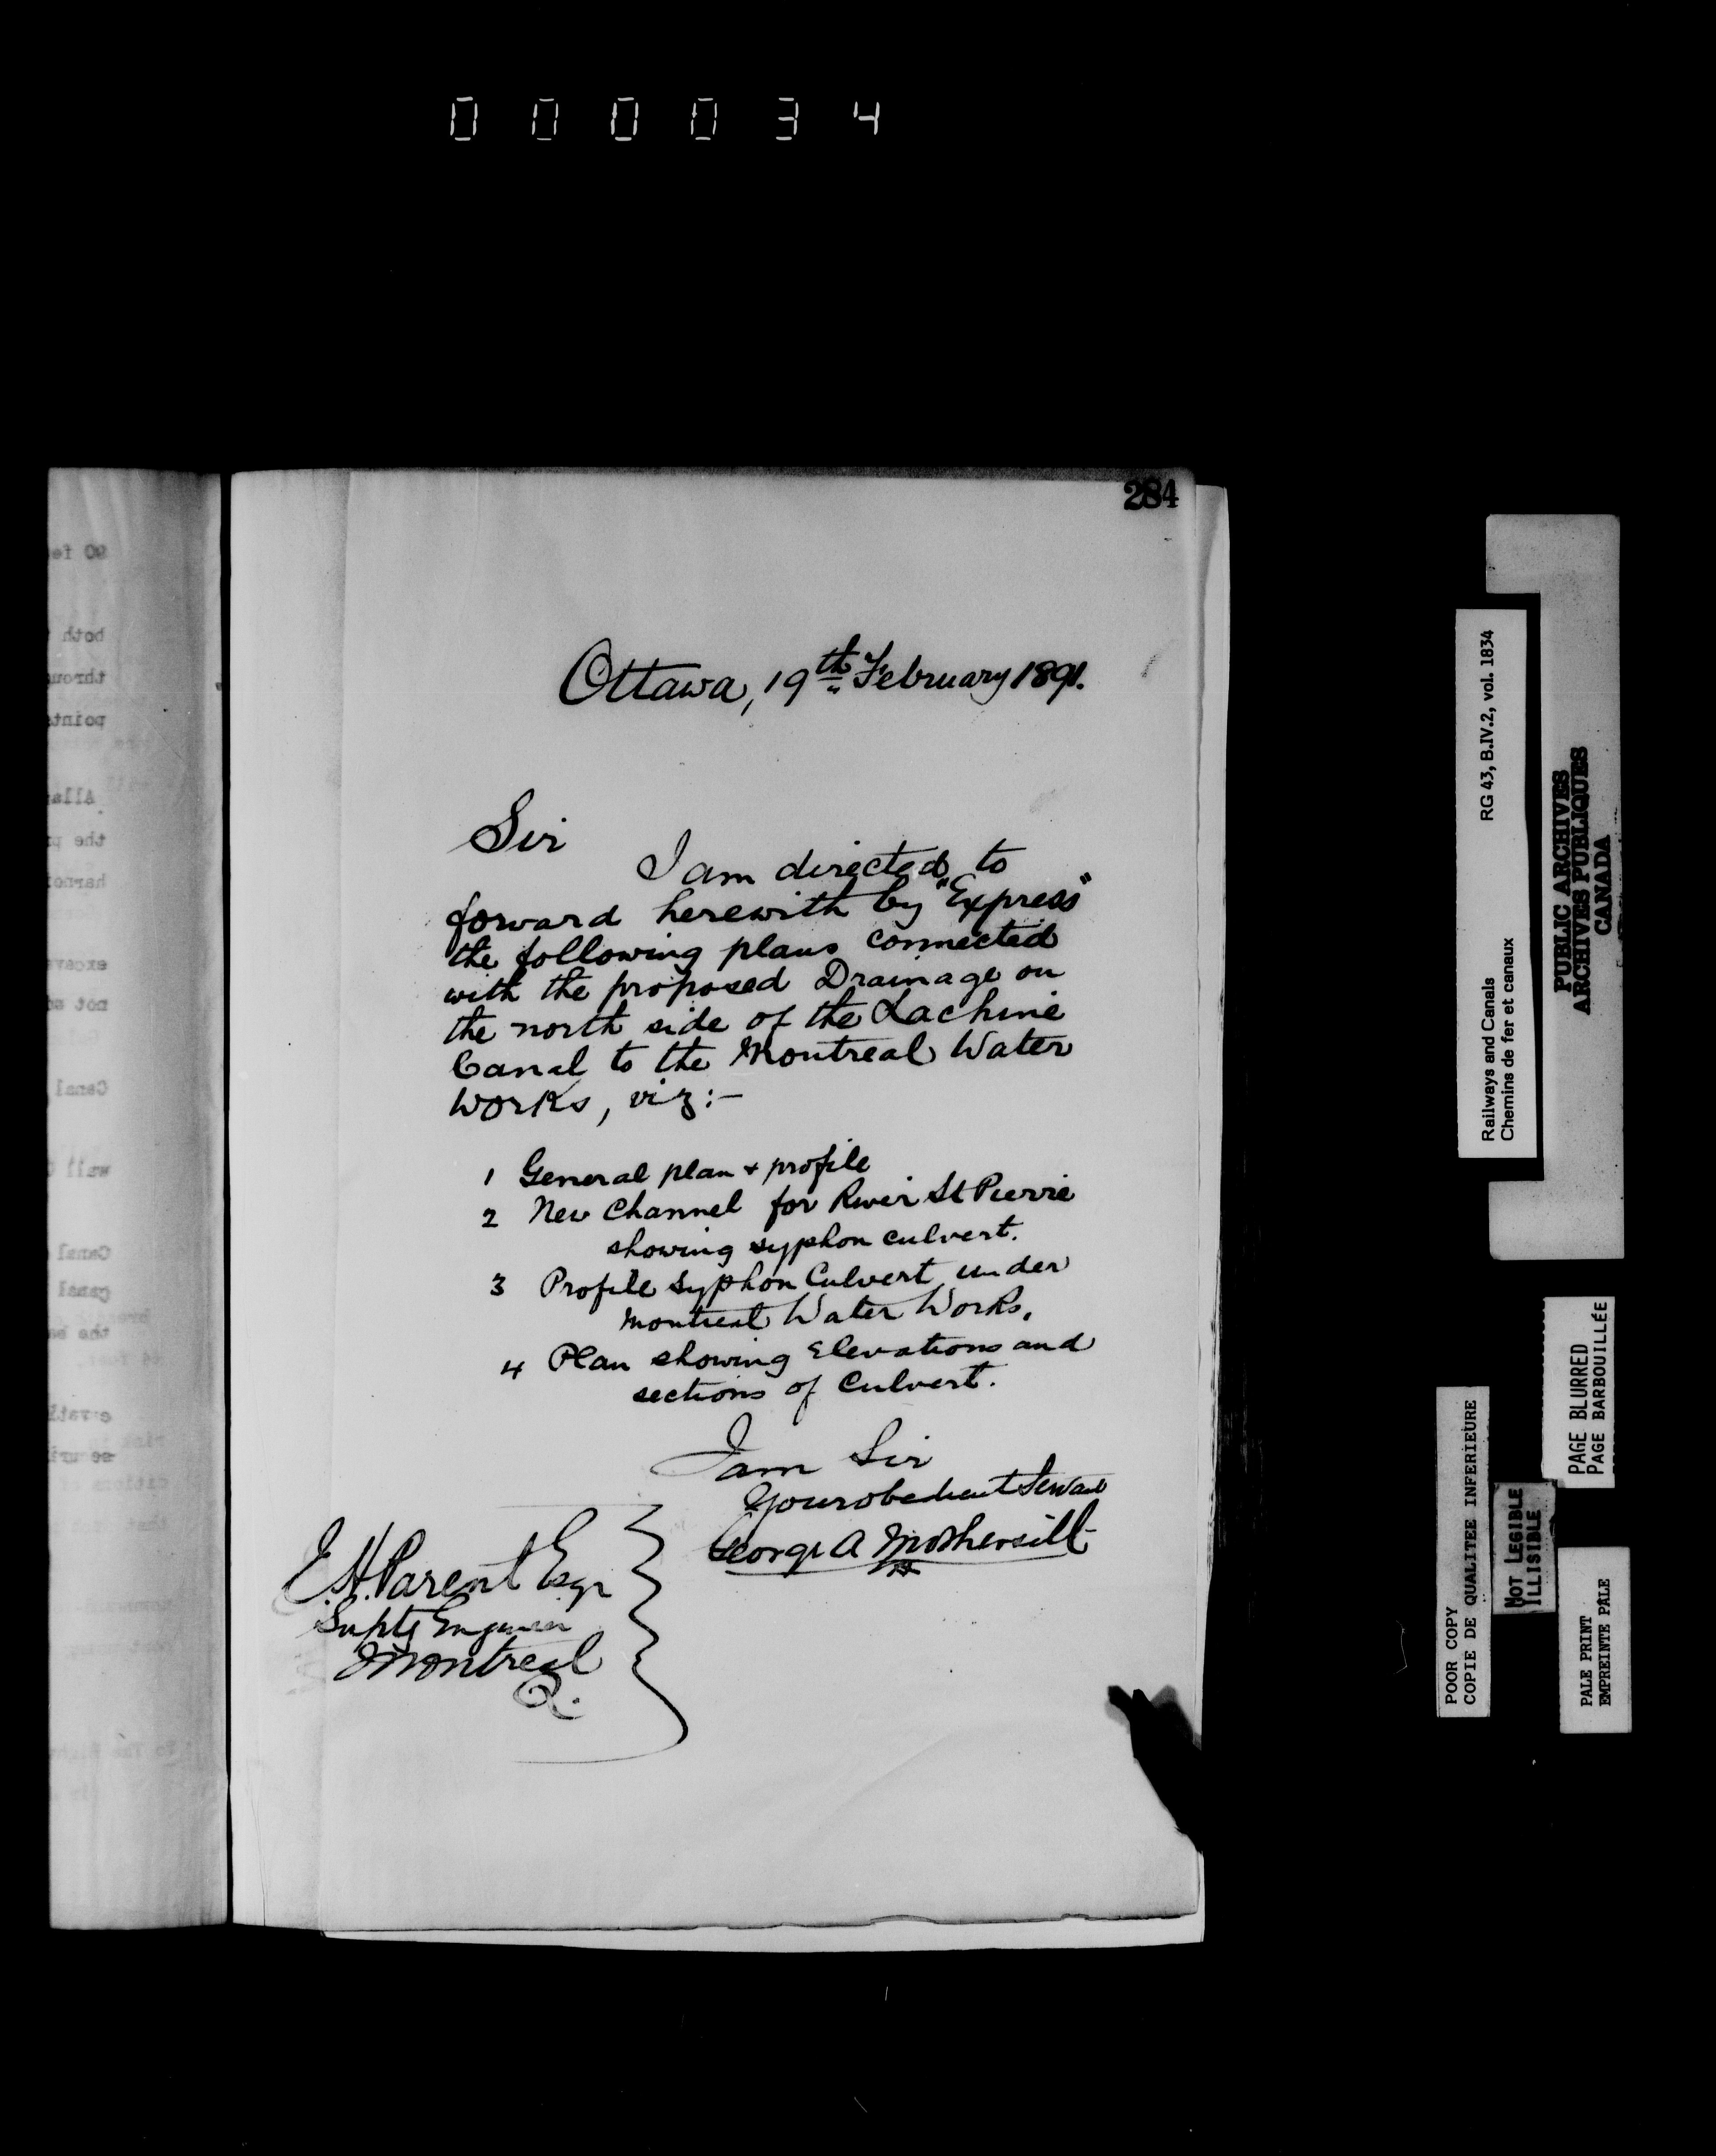 000034
284
Ottawa, 19th February 1891.
Sir
I am directed to
forward herewith by "Express"
the following plans connected
with the proposed Drainage on
the north side of the Lachine
Canal to the Montreal Water
Works, viz:-
1 General plan + profile
2 New Channel for River St Pierre
showing syphon culvert.
3 Profile Syphon Culvert under
Montreal Water Works.
4 Plan showing Elevations and
sections of Culvert.
I am Sir
Your obedient Servant
George A Mothersill
E.H. Parent Esqr
Suptg Engineer
Montreal
Q.
Railways and Canals RG 43, B.IV.2, vol. 1834
Chemins de fer et canaux
PUBLIC ARCHIVES
ARCHIVES PUBLIQUES
CANADA
PAGE BLURRED
PAGE BARBOUILLÉE
POOR COPY
COPIE DE QUALITEE INFERIEURE
NOT LEGIBLE
ILLISIBLE
PALE PRINT
EMPREINTE PÂLE